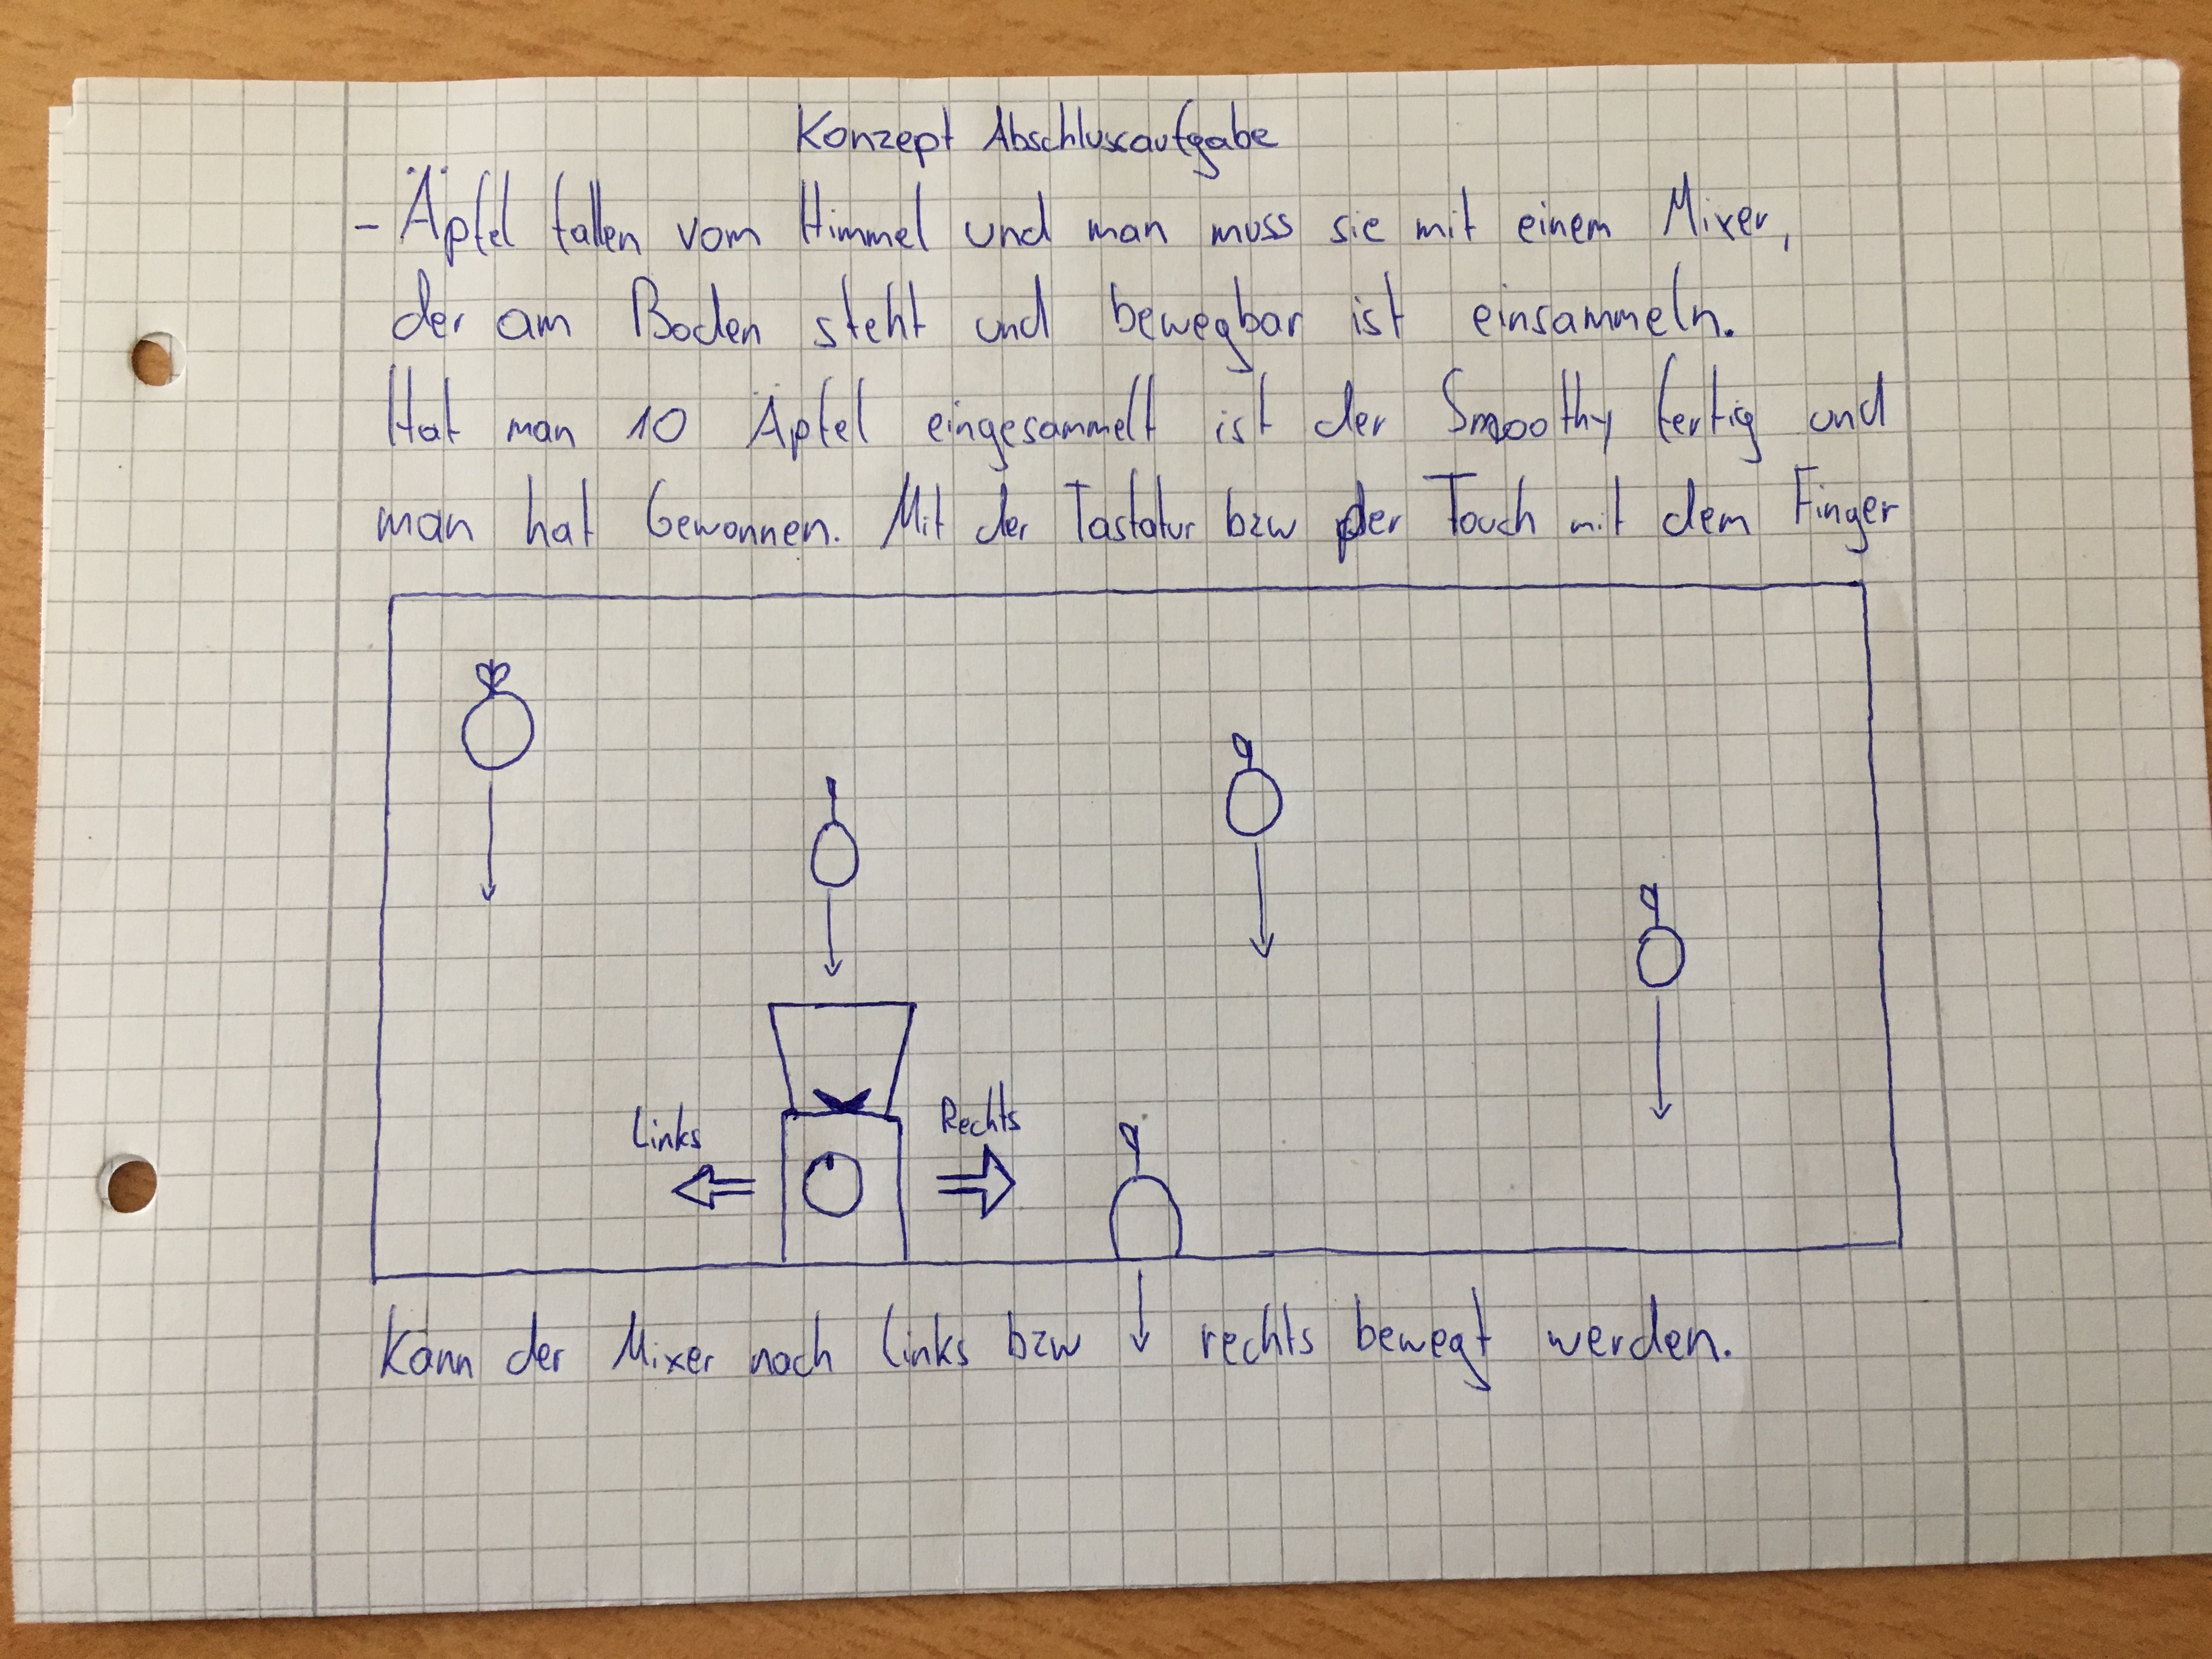 Konzept Abschlussaufgabe
- Äpfel fallen vom Himmel und man muss sie mit einem Mixer,
der am Boden steht und bewegbar ist einsammeln.
Hat man 10 Äpfel eingesammelt ist der Smoothy fertig und
man hat gewonnen. Mit der Tastatur bzw der Touch mit dem Finger
Links
Rechts
Kann der Mixer nach links bzw rechts bewegt werden.